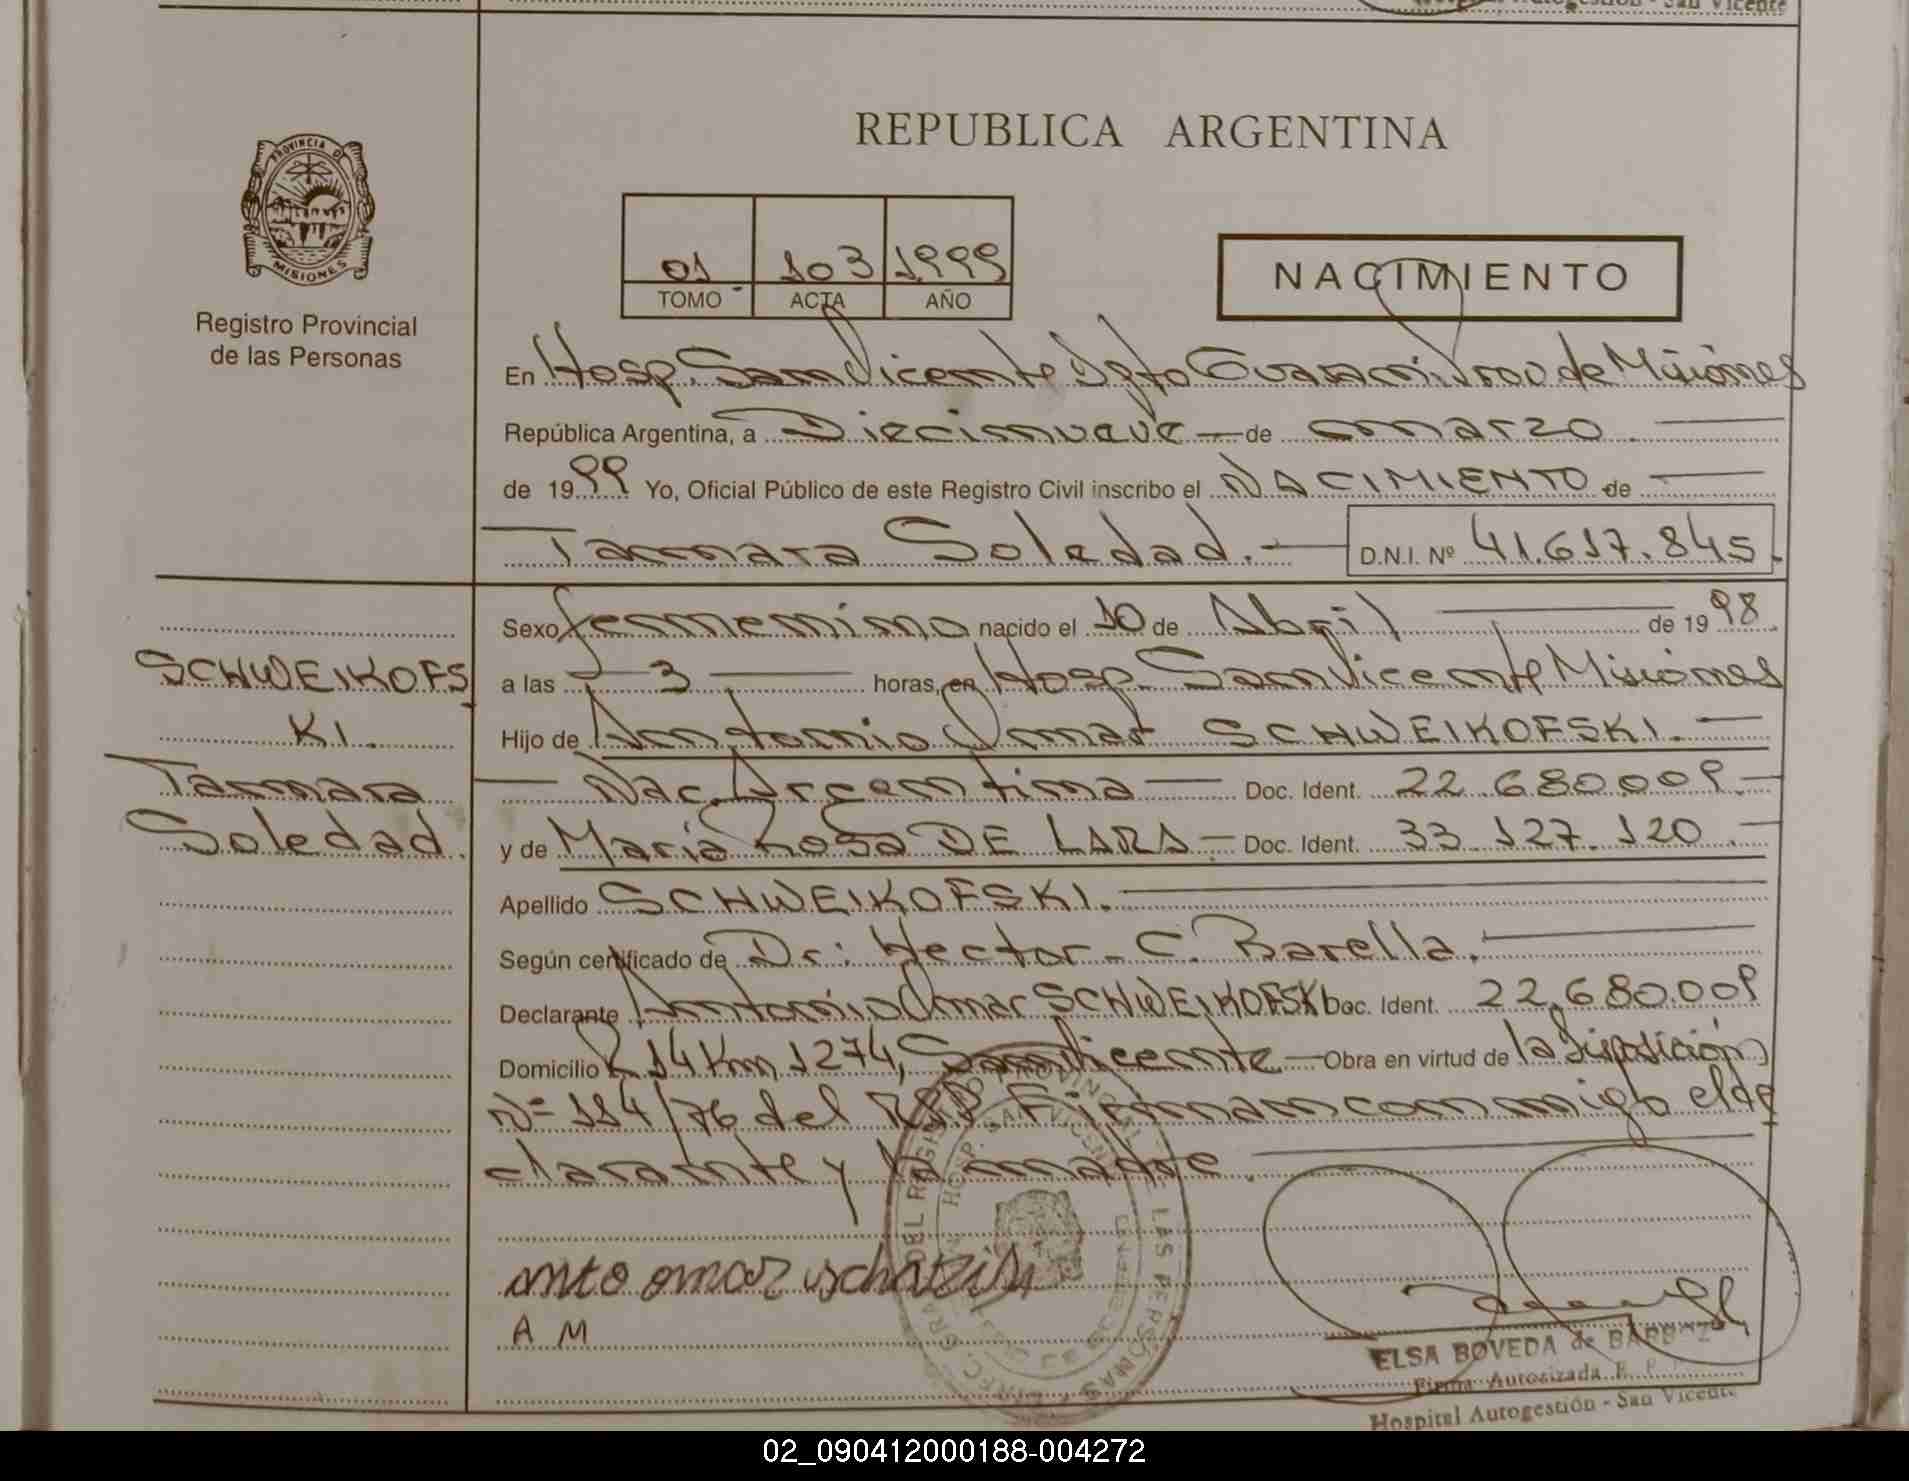 Hospital Autogestión - San Vicente
REPUBLICA ARGENTINA
PROVINCIA DE
MISIONES
Registro Provincial
de las Personas
01 103 1999
TOMO ACTA AÑO
NACIMIENTO
En Hosp. San Vicente Dpto Guarani Prov de Misiones
República Argentina, a Diecinueve de marzo
de 1999 Yo, Oficial Público de este Registro Civil inscribo el NACIMIENTO de
Tamara Soledad. D.N.I. Nº 41.617.845.
Sexo femenino nacido el 10 de Abril de 1998
SCHWEIKOFS
KI.
Tamara
Soledad.
a las 3 horas, en Hosp. San Vicente Misiones
Hijo de Antonio Omar SCHWEIKOFSKI.
Nac. Argentina Doc. Ident. 22.680.009.
y de María Rosa DE LARA Doc. Ident. 33.127.120
Apellido SCHWEIKOFSKI.
Según certificado de Dr: Hector C. Barella.
Declarante Antonio Omar SCHWEIKOFSKI Doc. Ident. 22.680.009
Domicilio R 14 Km 1274, San Vicente Obra en virtud de la Disposición
Nº 114/76 del RPP. Firman conmigo el de
clarante y la madre.
anto omar
A M
ELSA BOVEDA de
Firma Autorizada
Hospital Autogestión - San Vicente
02_090412000188-004272